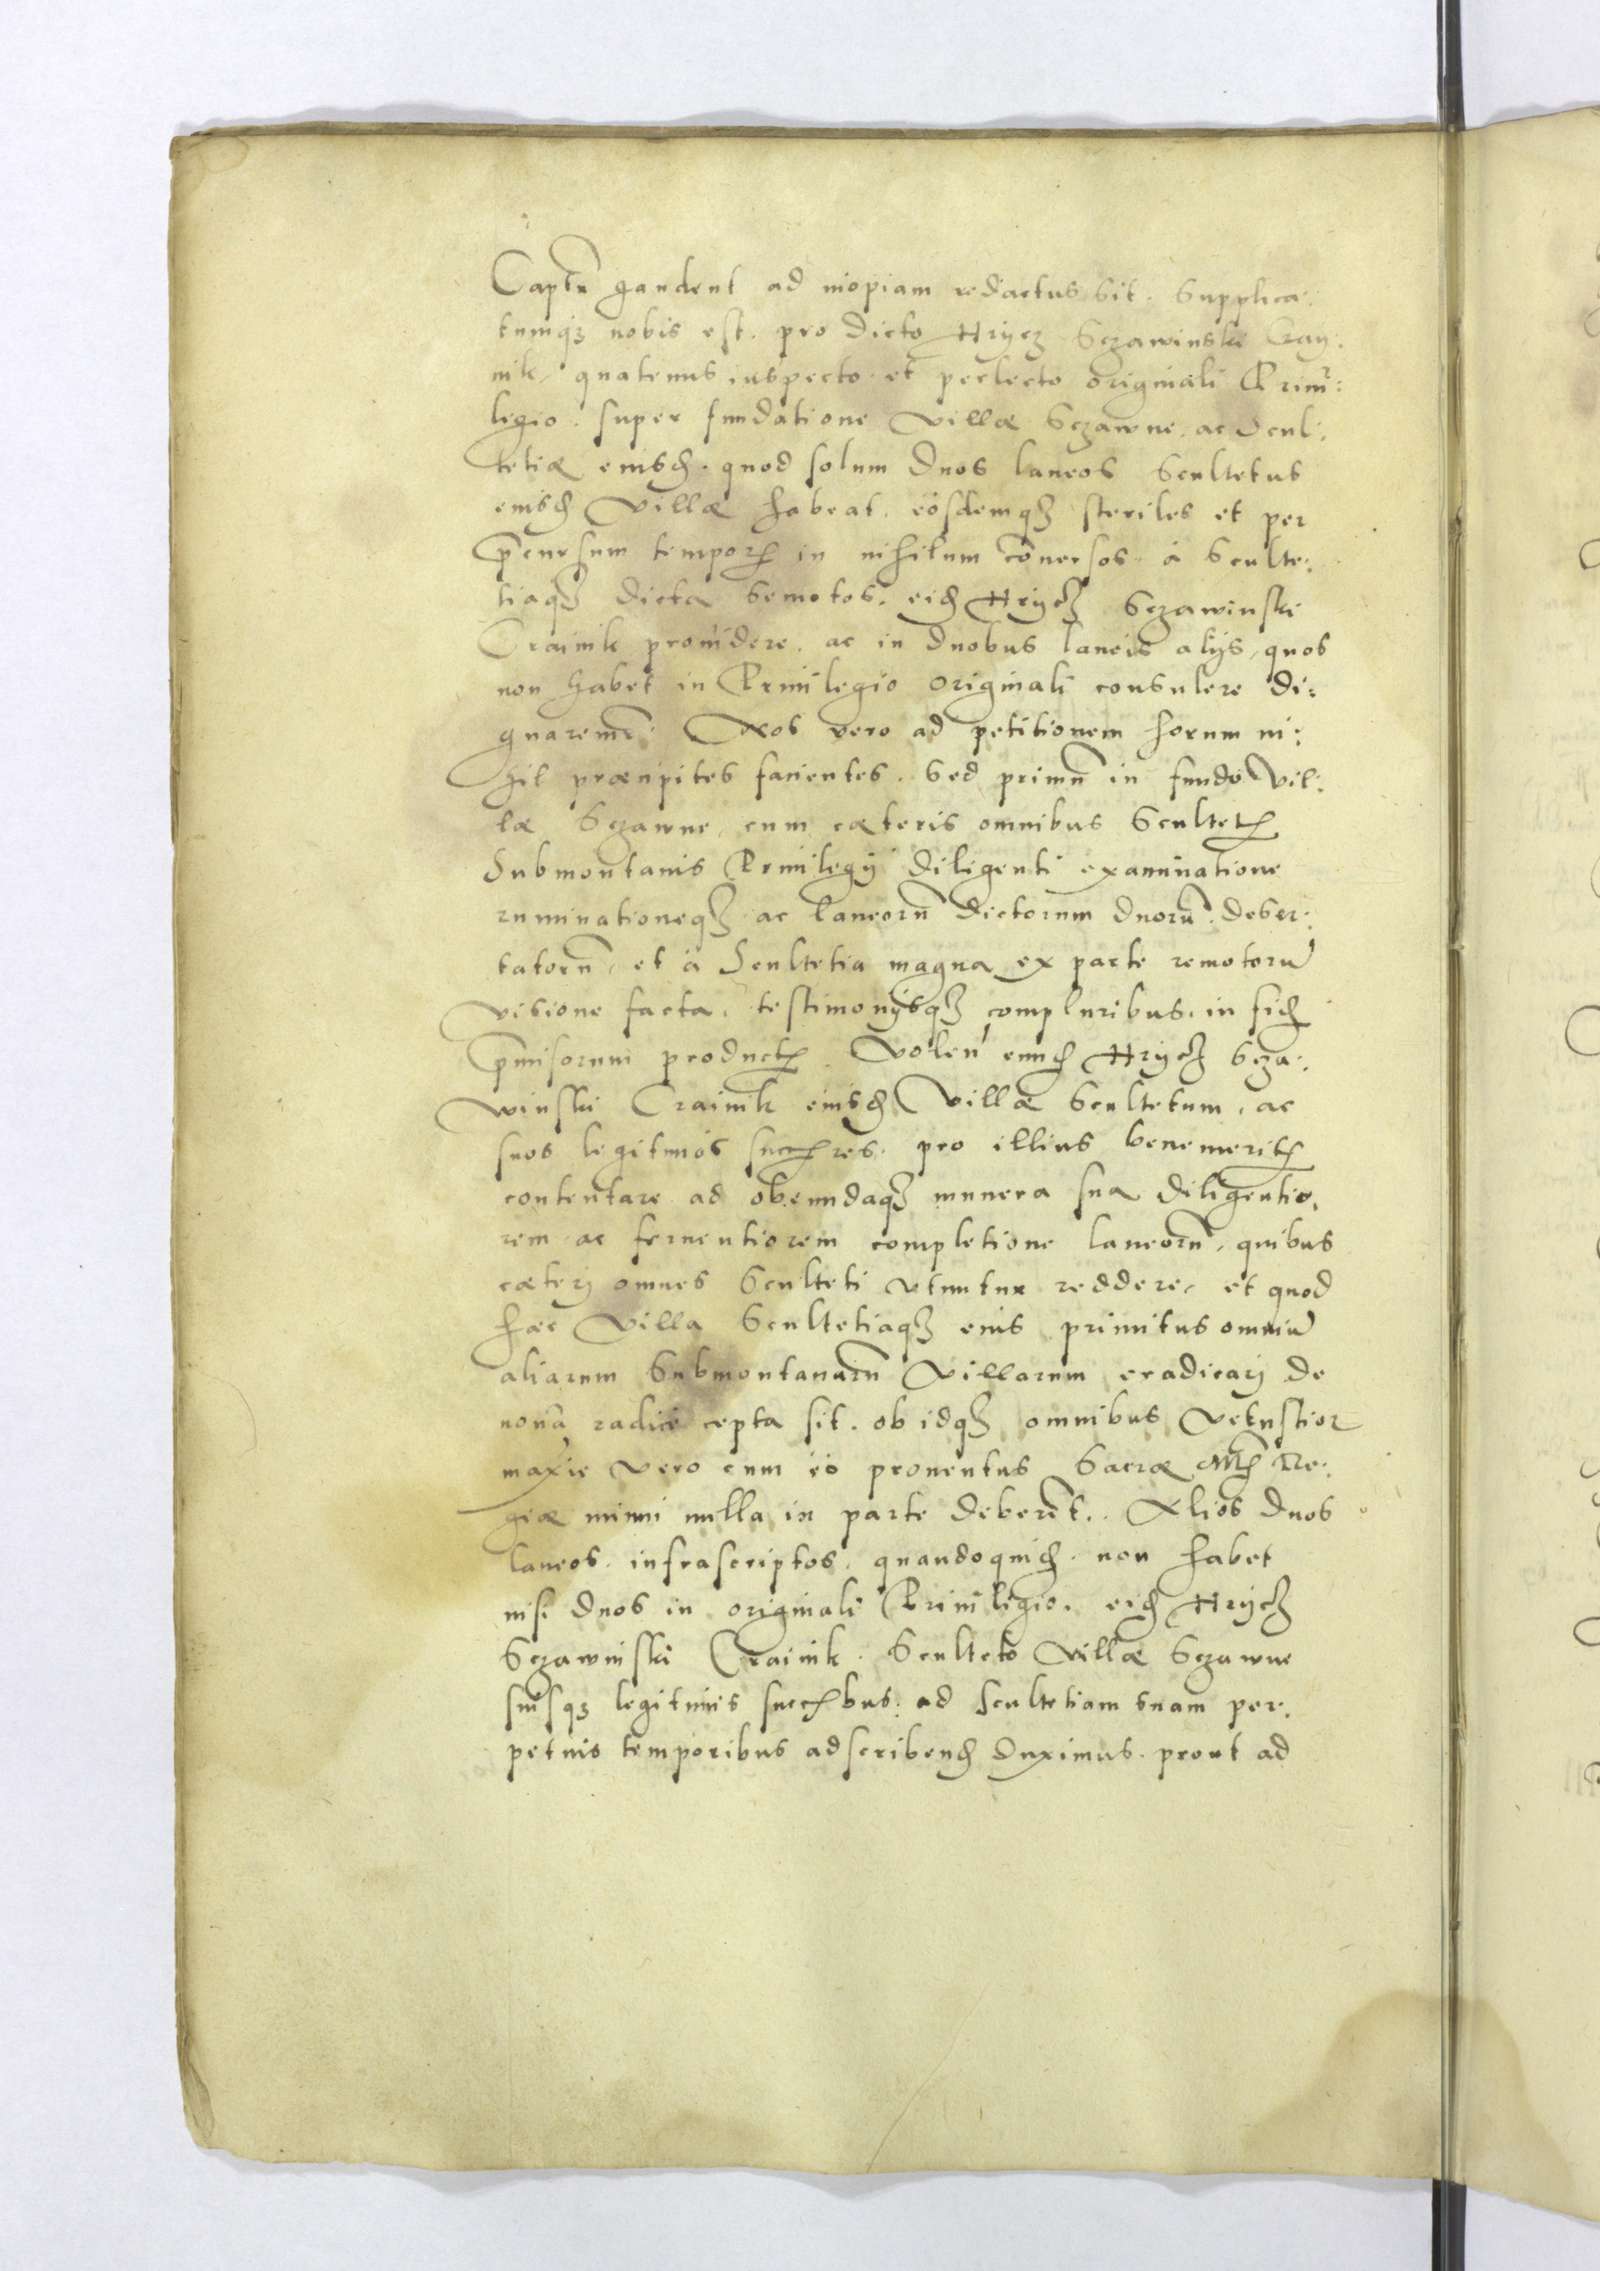 Captu gaudent ad inopiam redactus sit. Supplica:
tumq3 nobis est. pro dicto Hrycz Sczawinski Cray:
nik, quatenus inspecto et perlecto originali Privi:
legio. super fundatione Villæ Sczawne. ac Scul:
tetiæ eiusd. quod solum duos laneos Scultetus
eiusd Villæ habeat. eosdemq3 steriles et per
pcursum tempor in nihilum cōversos. à Sculte:
tiaq3 dicta semotos. eid Hrycz Sczawinski
Crainik providere. ac in duobus laneis alijs, quos
non habet in Privilegio originali consulere di:
gnaremr. Nos vero ad petitionem horum ni:
hil præcipites facientes. Sed primū in fundo Vil:
læ Sczawne, cum cæteris omnibus Scultet
Submontanis Privilegij diligenti examinatione
ruminationeq3 ac laneorū dictorum duorū. deser:
tatorū, et à Scultetia magna ex parte remotorū
visione facta. testimonijsq3 compluribus. in fid
pmisorum product. Volen eund Hrycz Scza:
winski Crainik eiusd Villæ Scultetum, ac
suos legitimos succres. pro illius benemerit
contentare ad obeundaq3 munera sua diligentio:
rem ac ferventiorem completione laneorū, quibus
cæteri omnes Sculteti utuntur reddere, et quod
hæc Villa Scultetiaq3 eius primitus omniū
aliarum Submontanarū Villarum eradicari de
nova radice cepta sit. ob idq3 omnibus Vetustior
maxīe vero cum eo proventus Sacræ Mtis Re:
giæ minui nulla in parte deberēt. Alios duos
laneos infrascriptos. quandoquid non habet
nisi duos in originali Privilegio. eid Hrycz
Sczawinski Crainik. Sculteto Villæ Sczawne
suisq3 legitimis succbus. ad Scultetiam suam per:
petuis temporibus adscribend duximus. prout ad